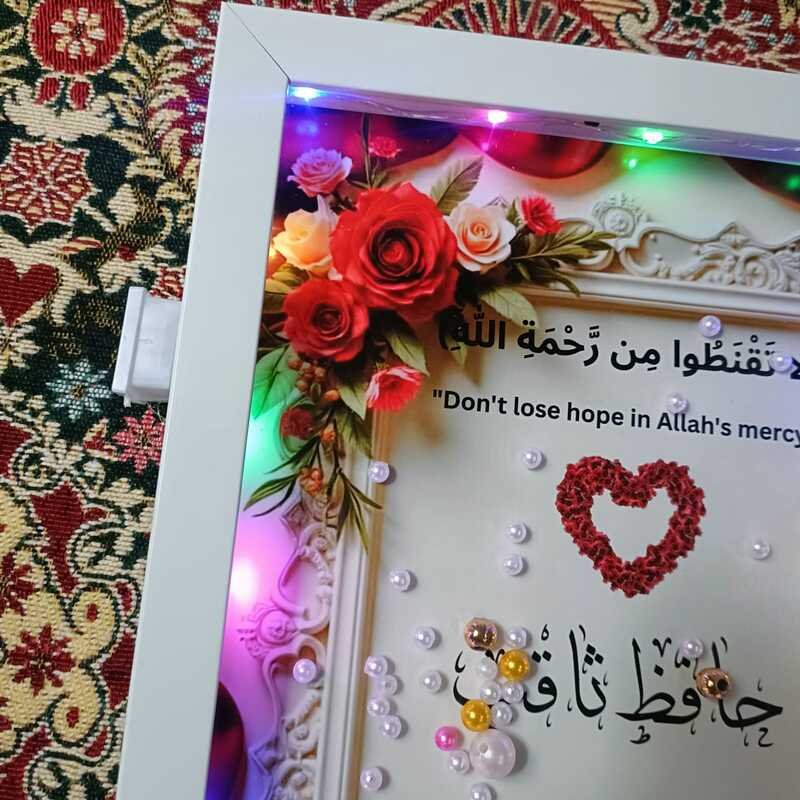 تَقْنَطُوا مِن رَّحْمَةِ اللَّهِ)
"Don't lose hope in Allah's mercy
حافظ ثاقب